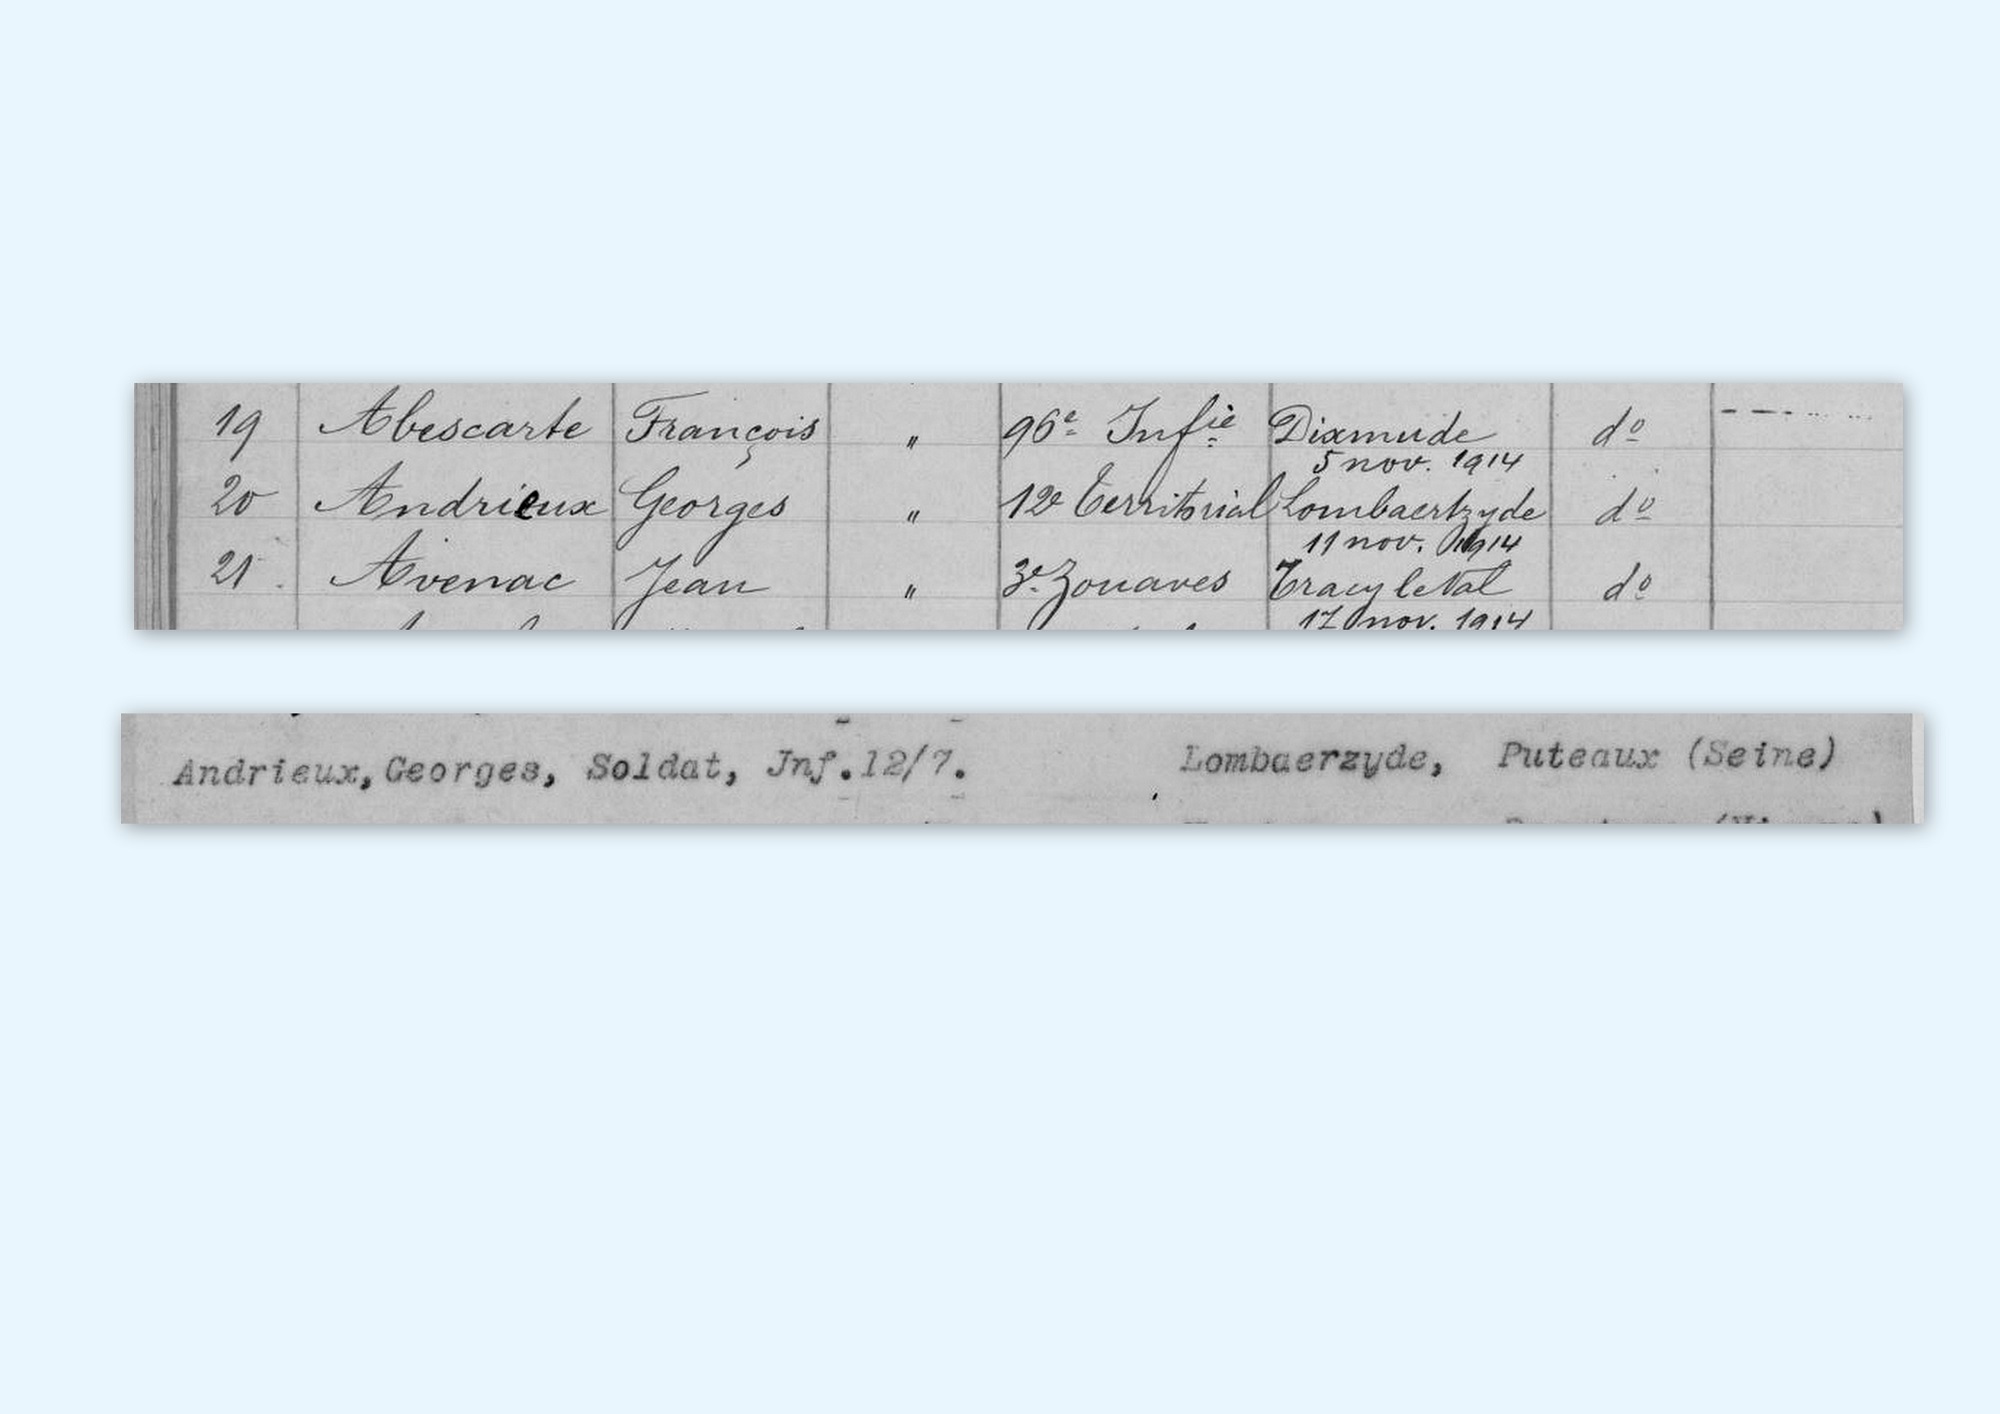 19 Abescarte François " 96e Infie Dixmude do
5 nov. 1914
20 Andrieux Georges " 12e Territorial Lombaertzyde do
11 nov. 1914
21 Avenac Jean " 3e Zouaves Tracy le Val do
17 nov. 1914
Andrieux, Georges, Soldat, Jnf.12/7. Lombaerzyde, Puteaux (Seine)